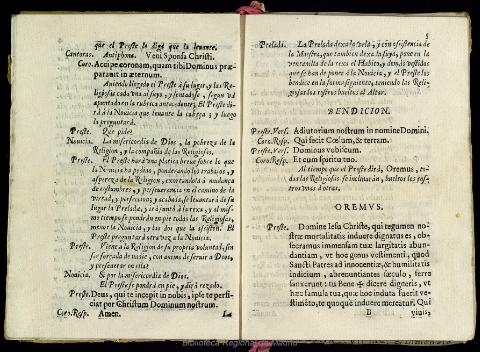 que el Preste le diga que la levante.
Cantoras. Antiphona. Veni Sponsa Christi.
Coro. Accipe coronam, quam tibi Dominus præ-
paravit in æternum.
Aviendo llegado el Preste à su lugar, y las Re-
ligiosas cada una al suyo, y sentadose, segun và
apuntado en la rubrica antecedente; El Preste di-
rà à la Novicia que levante la cabeça; y luego
la preguntarà.
Preste. Que pide?
Novicia. La misericordia de Dios, la pobreza de la
Religion, y la compañia de las Religiosas.
Preste. El Preste harà una platica breve sobre lo que
la Novicia ha pedido, ponderando los trabajos, y
aspereza de la Religion, exortandola à mudança
de costumbres, y perseverancia en el camino de la
virtud, y perfeccion; y acabada, se levantarà de su
lugar la Prelada, y irà junto à la rexa, y al mis-
mo tiempo se pondràn en pie todas las Religiosas,
menos la Novicia, y las dos que la assisten. El
Preste preguntarà otra vez à la Novicia.
Preste. Viene à la Religion de su propria voluntad, sin
ser forçada de nadie, con animo de servir à Dios,
y perseverar en ella?
Novicia. Si por la misericordia de Dios.
El Preste se pondrà en pie, y dirà rezado.
Preste. Deus, qui te incepit in nobis, ipse te perfi-
ciat per Christum Dominum nostrum.
Coro. Resp. Amen.
La
5
Prelada. La Prelada dexa la vela, y con assistencia de
la Maestra, que tambien dexa la suya, pone en la
ventanilla de la rexa el Habito, y demàs vestidos
que se han de poner à la Novicia, y el Preste los
bendice en la forma siguiente, teniendo las Reli-
giosas los rostros bueltos al Altar.
BENDICION.
Preste. Vers. Adiutorium nostrum in nomine Domini,
Coro. Resp. Qui fecit Cœlum, & terram.
Preste. Vers. Dominus vobiscum.
Coro. Resp. Et cum spiritu tuo.
Al tiempo que el Preste dirà, Oremus, to-
das las Religiosas se inclinaràn, bueltos los ros-
tros unas à otras.
OREMVS.
Preste. Domine Iesu Christe, qui tegumen no-
stræ mortalitatis induere dignatus es, ob-
secramus immensam tuæ largitatis abun-
dantiam, ut hoc genus vestimenti, quod
Sancti Patres ad innocentiæ, & humilitatis
indicium, abrenuntiantes sæculo, ferre
sanxerunt: tu Bene ✠ dicere digneris, vt
hæc famula tua, quæ hoc induta fuerit ve-
stimento, te quoque induere mereatur. Qui
B
vivis,
Biblioteca Regional de Madrid